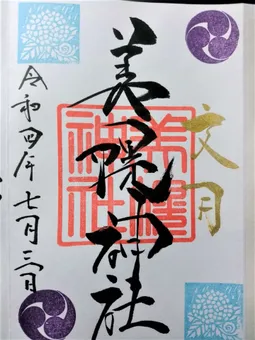 文月
美幌神社
美幌神社
令和四年七月三日